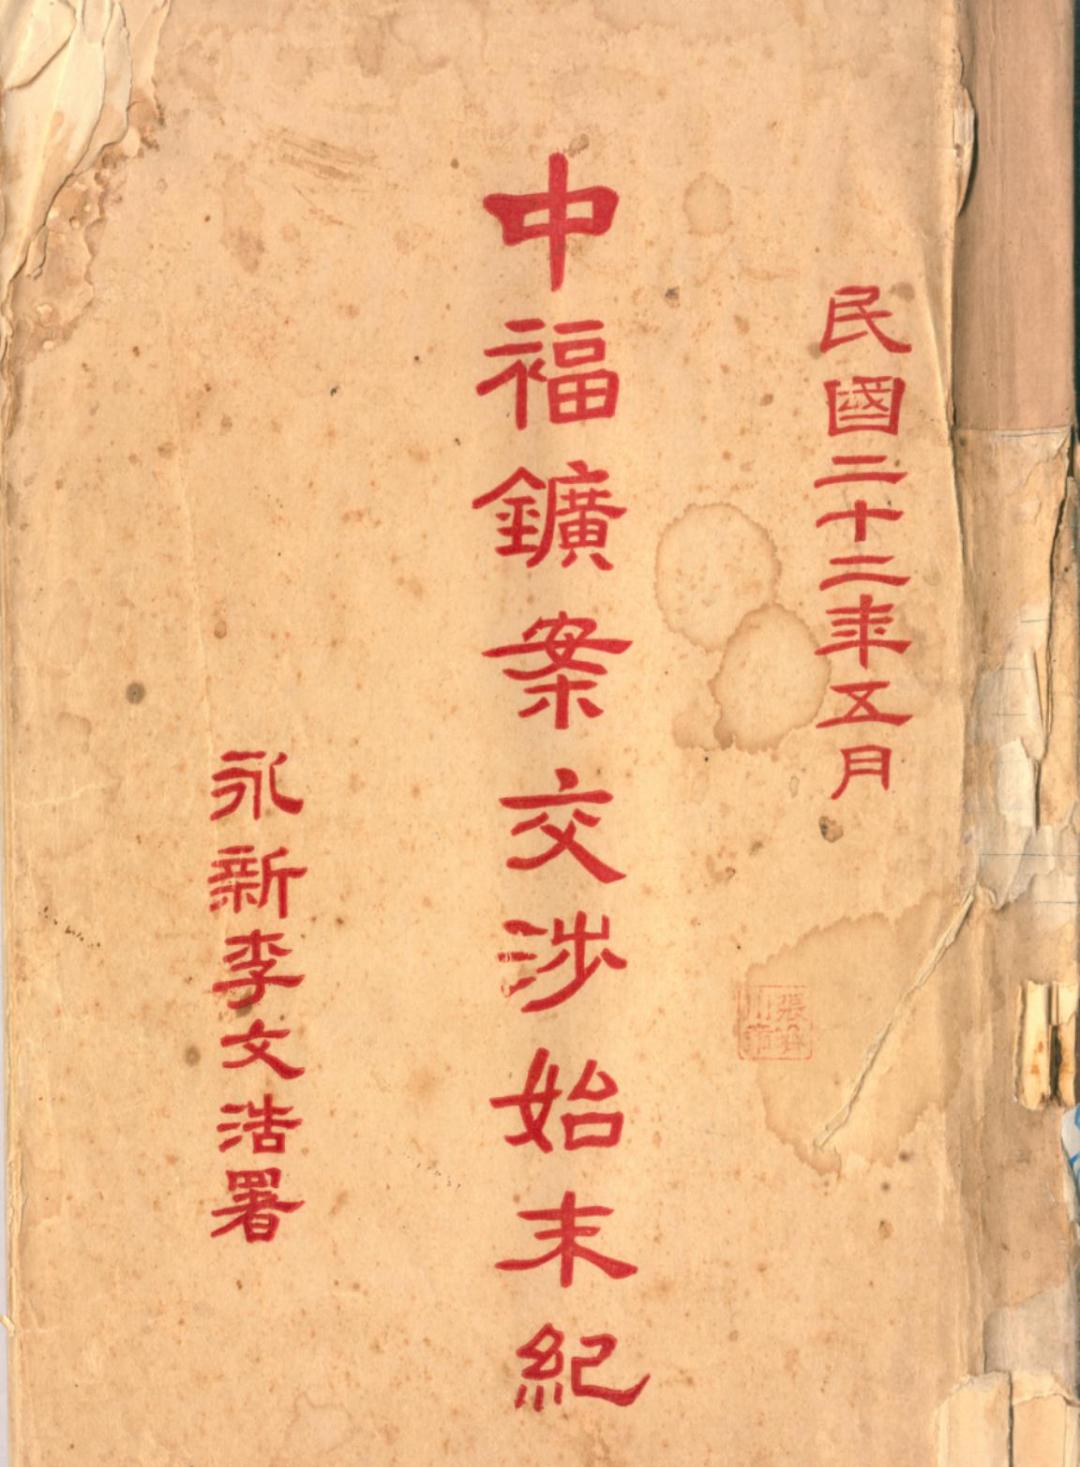 民國二十二年五月
中福鑛案交涉始末紀
永新李文浩署